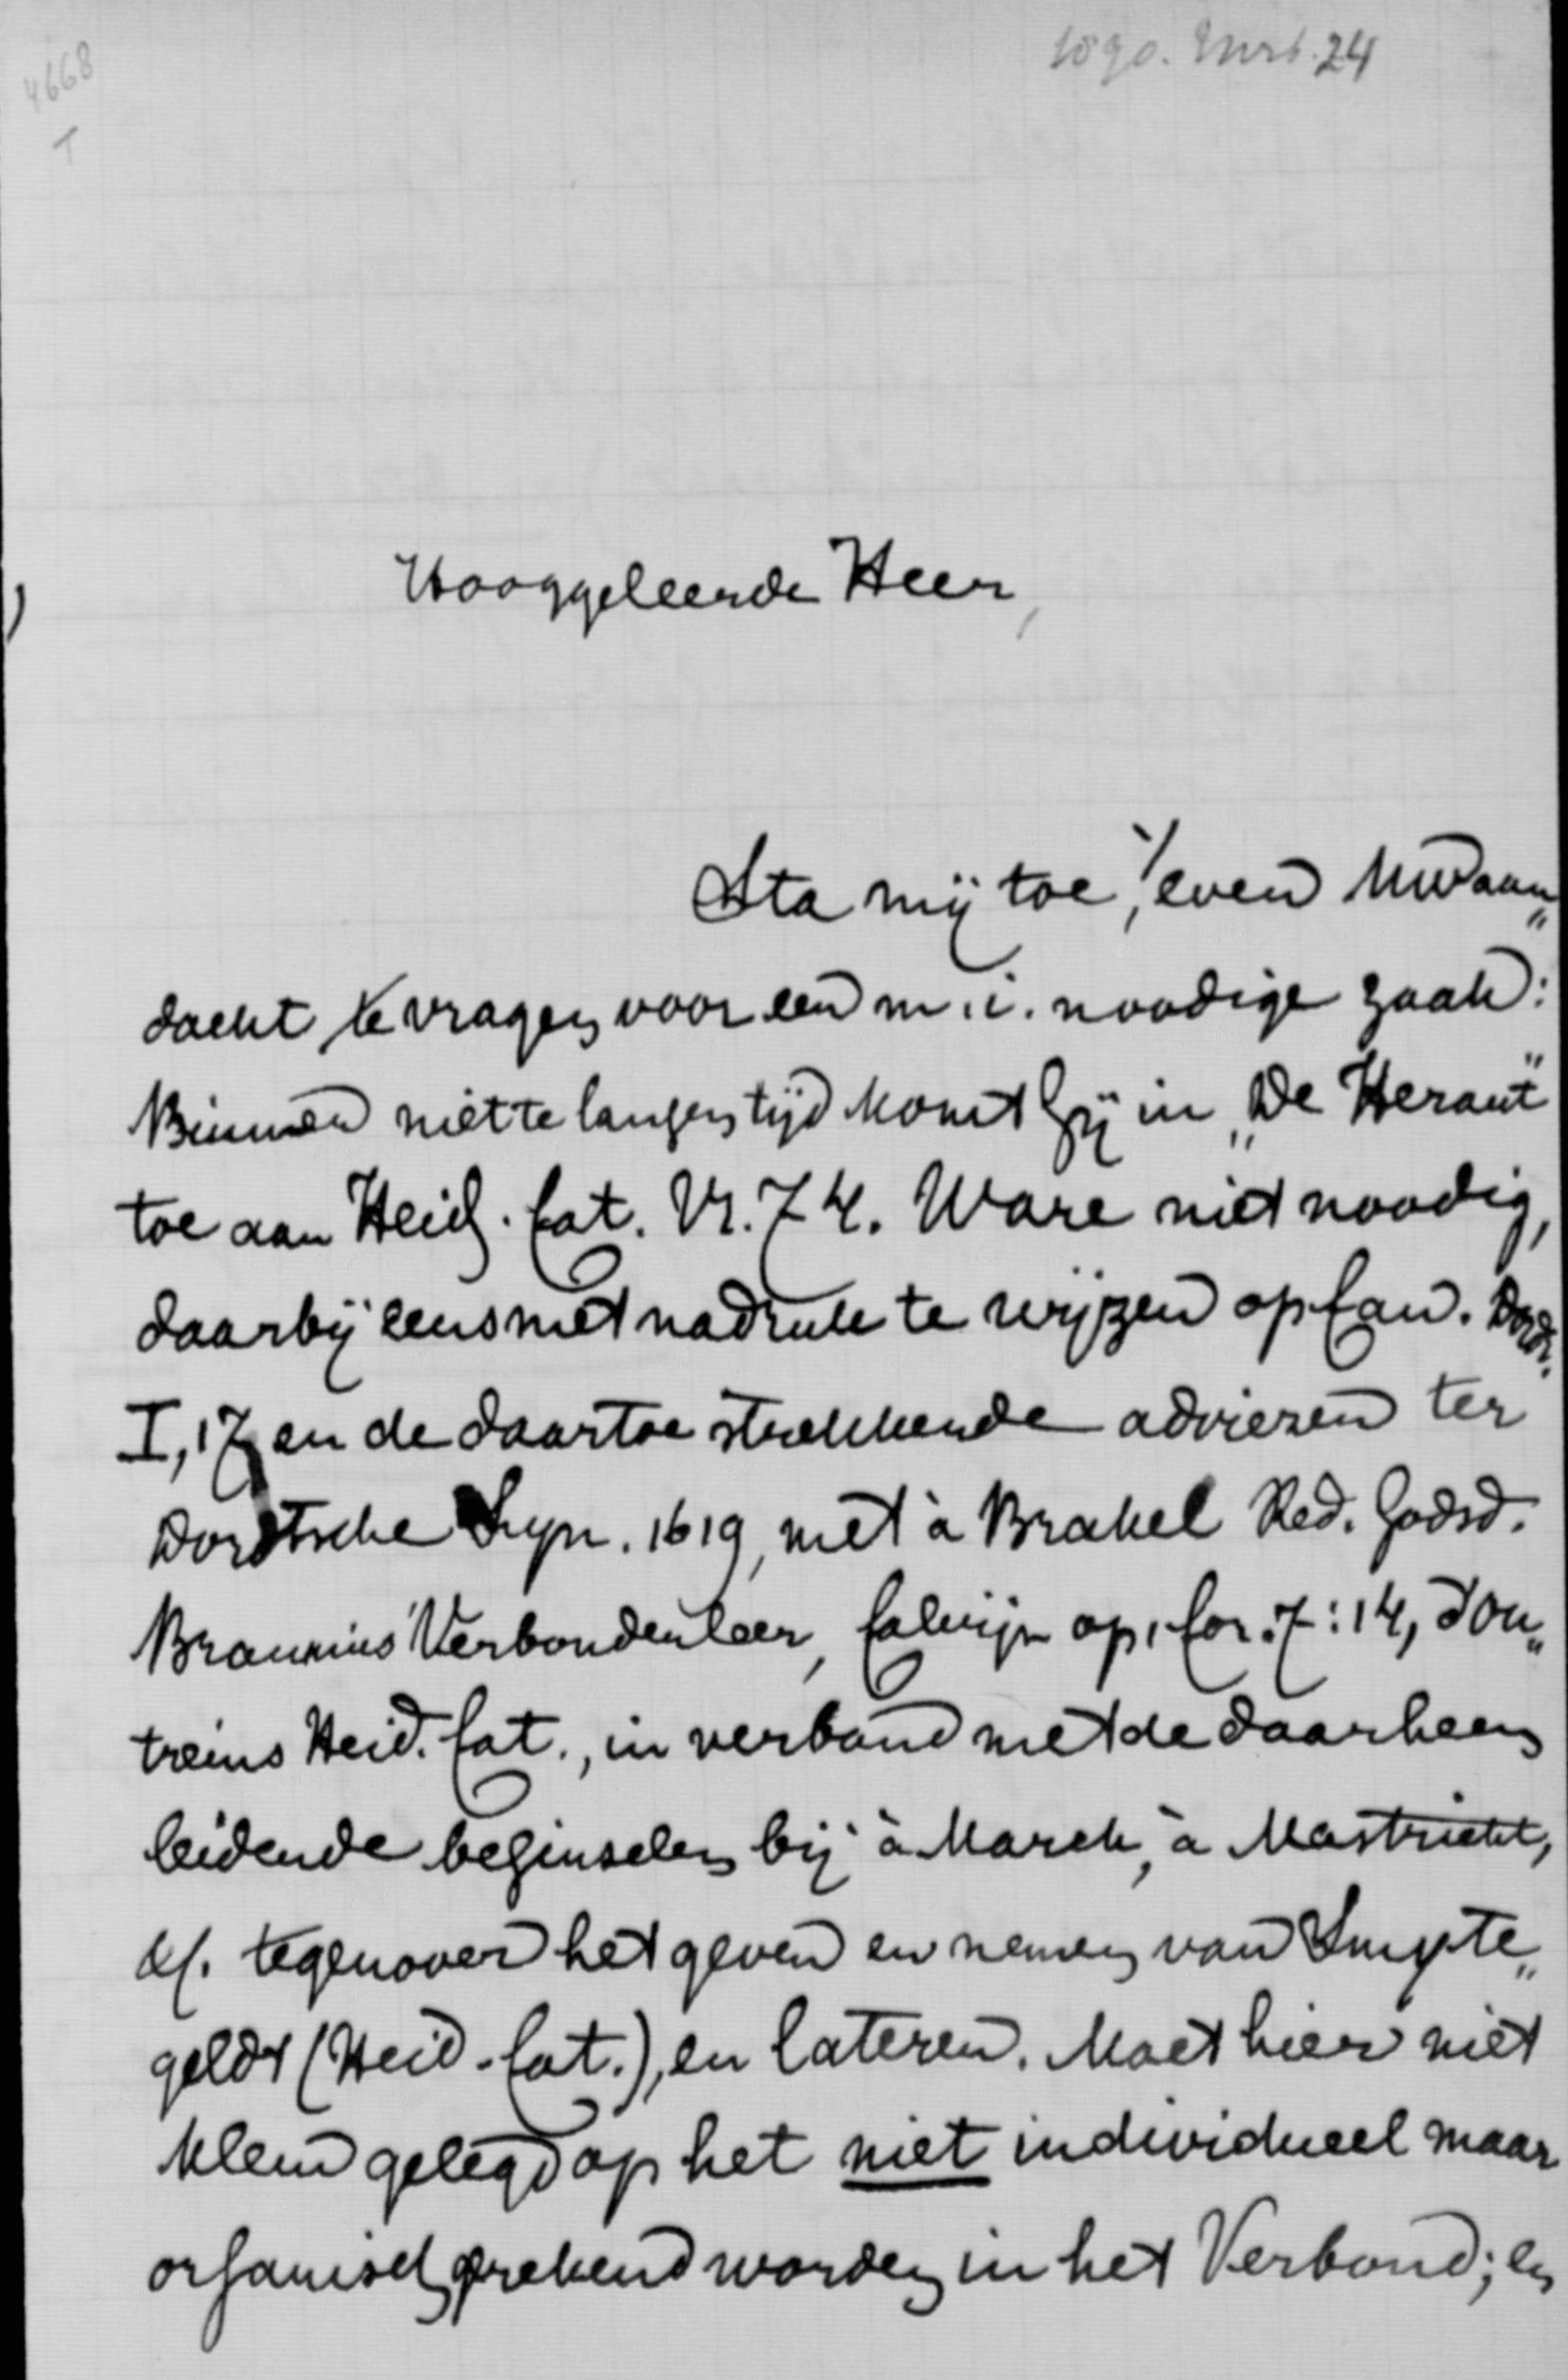 4668
T
1890. Mrt. 24
Hooggeleerde Heer,
Sta mij toe, even Uw aan„
dacht te vragen voor een m.i. noodige zaak:
Binnen niet te langen tijd komt Gij in „De Heraut"
toe aan Heid. Cat. Vr. 74. Ware niet noodig,
daarbij eens met nadruk te wijzen op Can. Dordr.
I, 17 en de daartoe strekkende adviezen ter
Dordtsche Syn. 1619, met à Brakel Red. Godsd.
Braunius Verbondenleer, Calvijn op 1 Cor. 7:14, d'Ou„
treins Heid. Cat., in verband met de daarheen
leidende beginselen bij à Marck, à Mastricht,
cf. tegenover het geven en nemen van
geldt (Heid. Cat.), en lateren. Moet hier niet
klem gelegd op het niet individueel maar
organisch gerekend worden in het Verbond; en